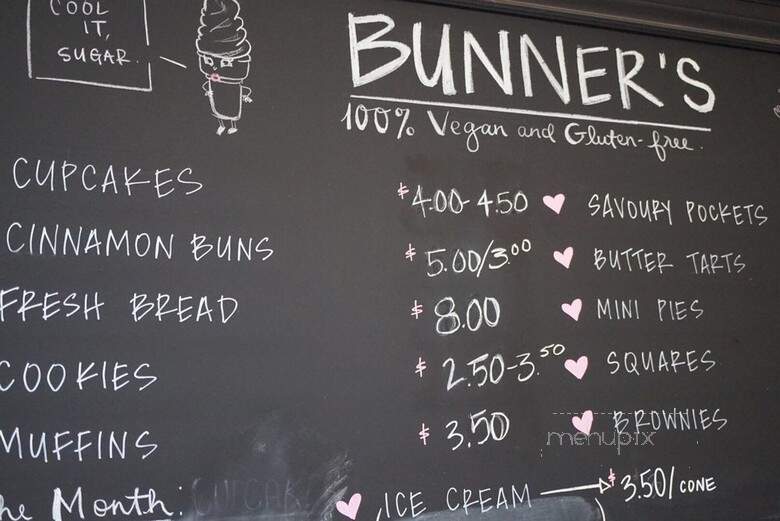 COOL
IT,
SUGAR.
BUNNER'S
100% Vegan and Gluten-free.
CUPCAKES $4.00-4.50 SAVOURY POCKETS
CINNAMON BUNS $5.00/3.00 BUTTER TARTS
FRESH BREAD $8.00 MINI PIES
COOKIES $2.50-3.50 SQUARES
MUFFINS $3.50 BROWNIES
menupix
he Month: ICE CREAM $3.50/CONE